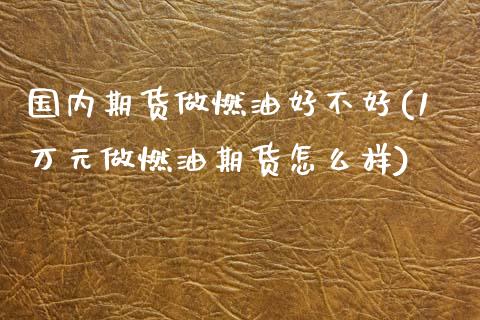 国内期货做燃油好不好(1
万元做燃油期货怎么样)